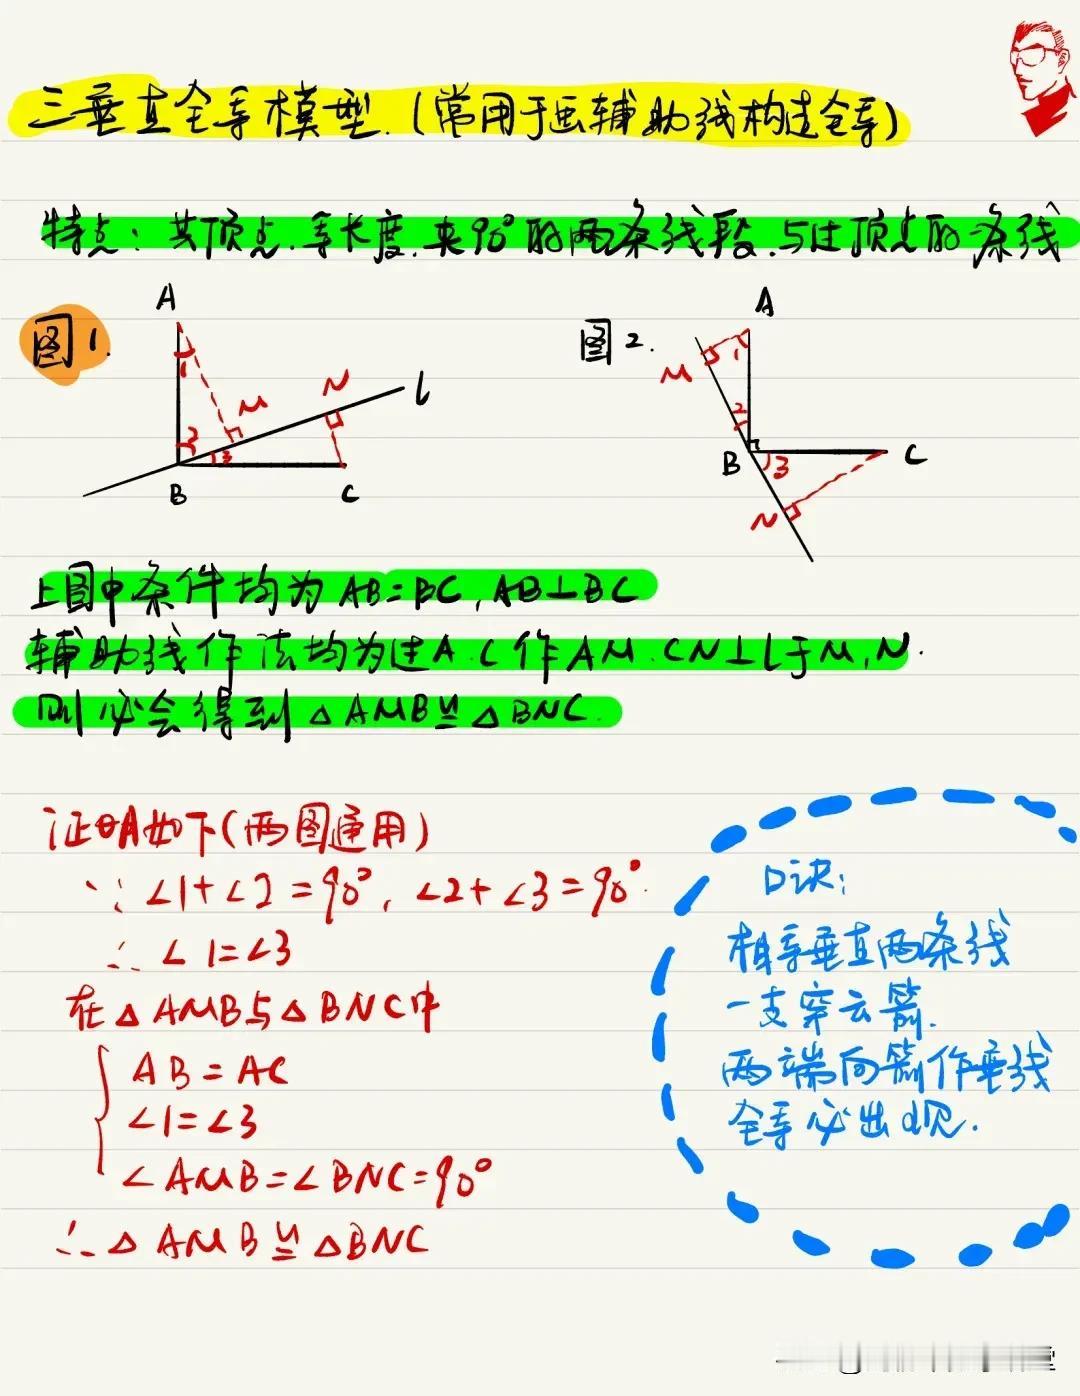 三垂直全等模型.(常用于画辅助线构造全等)
特点:共顶点.等长度.夹90°的两条线段.与过顶点的一条线
图1.
A
1
2
3
M
N
l
B
C
图2.
A
M
1
2
B
3
C
N
上图中条件均为AB=BC,AB⊥BC
辅助线作法均为过A.C作AM.CN⊥l于M,N.
则必会得到△AMB≌△BNC.
证明如下(两图通用)
∵∠1+∠2=90°,∠2+∠3=90°.
∴∠1=∠3
在△AMB与△BNC中
AB=AC
∠1=∠3
∠AMB=∠BNC=90°
∴△AMB≌△BNC
口诀:
相等垂直两条线
一支穿云箭.
两端向箭作垂线
全等必出现.